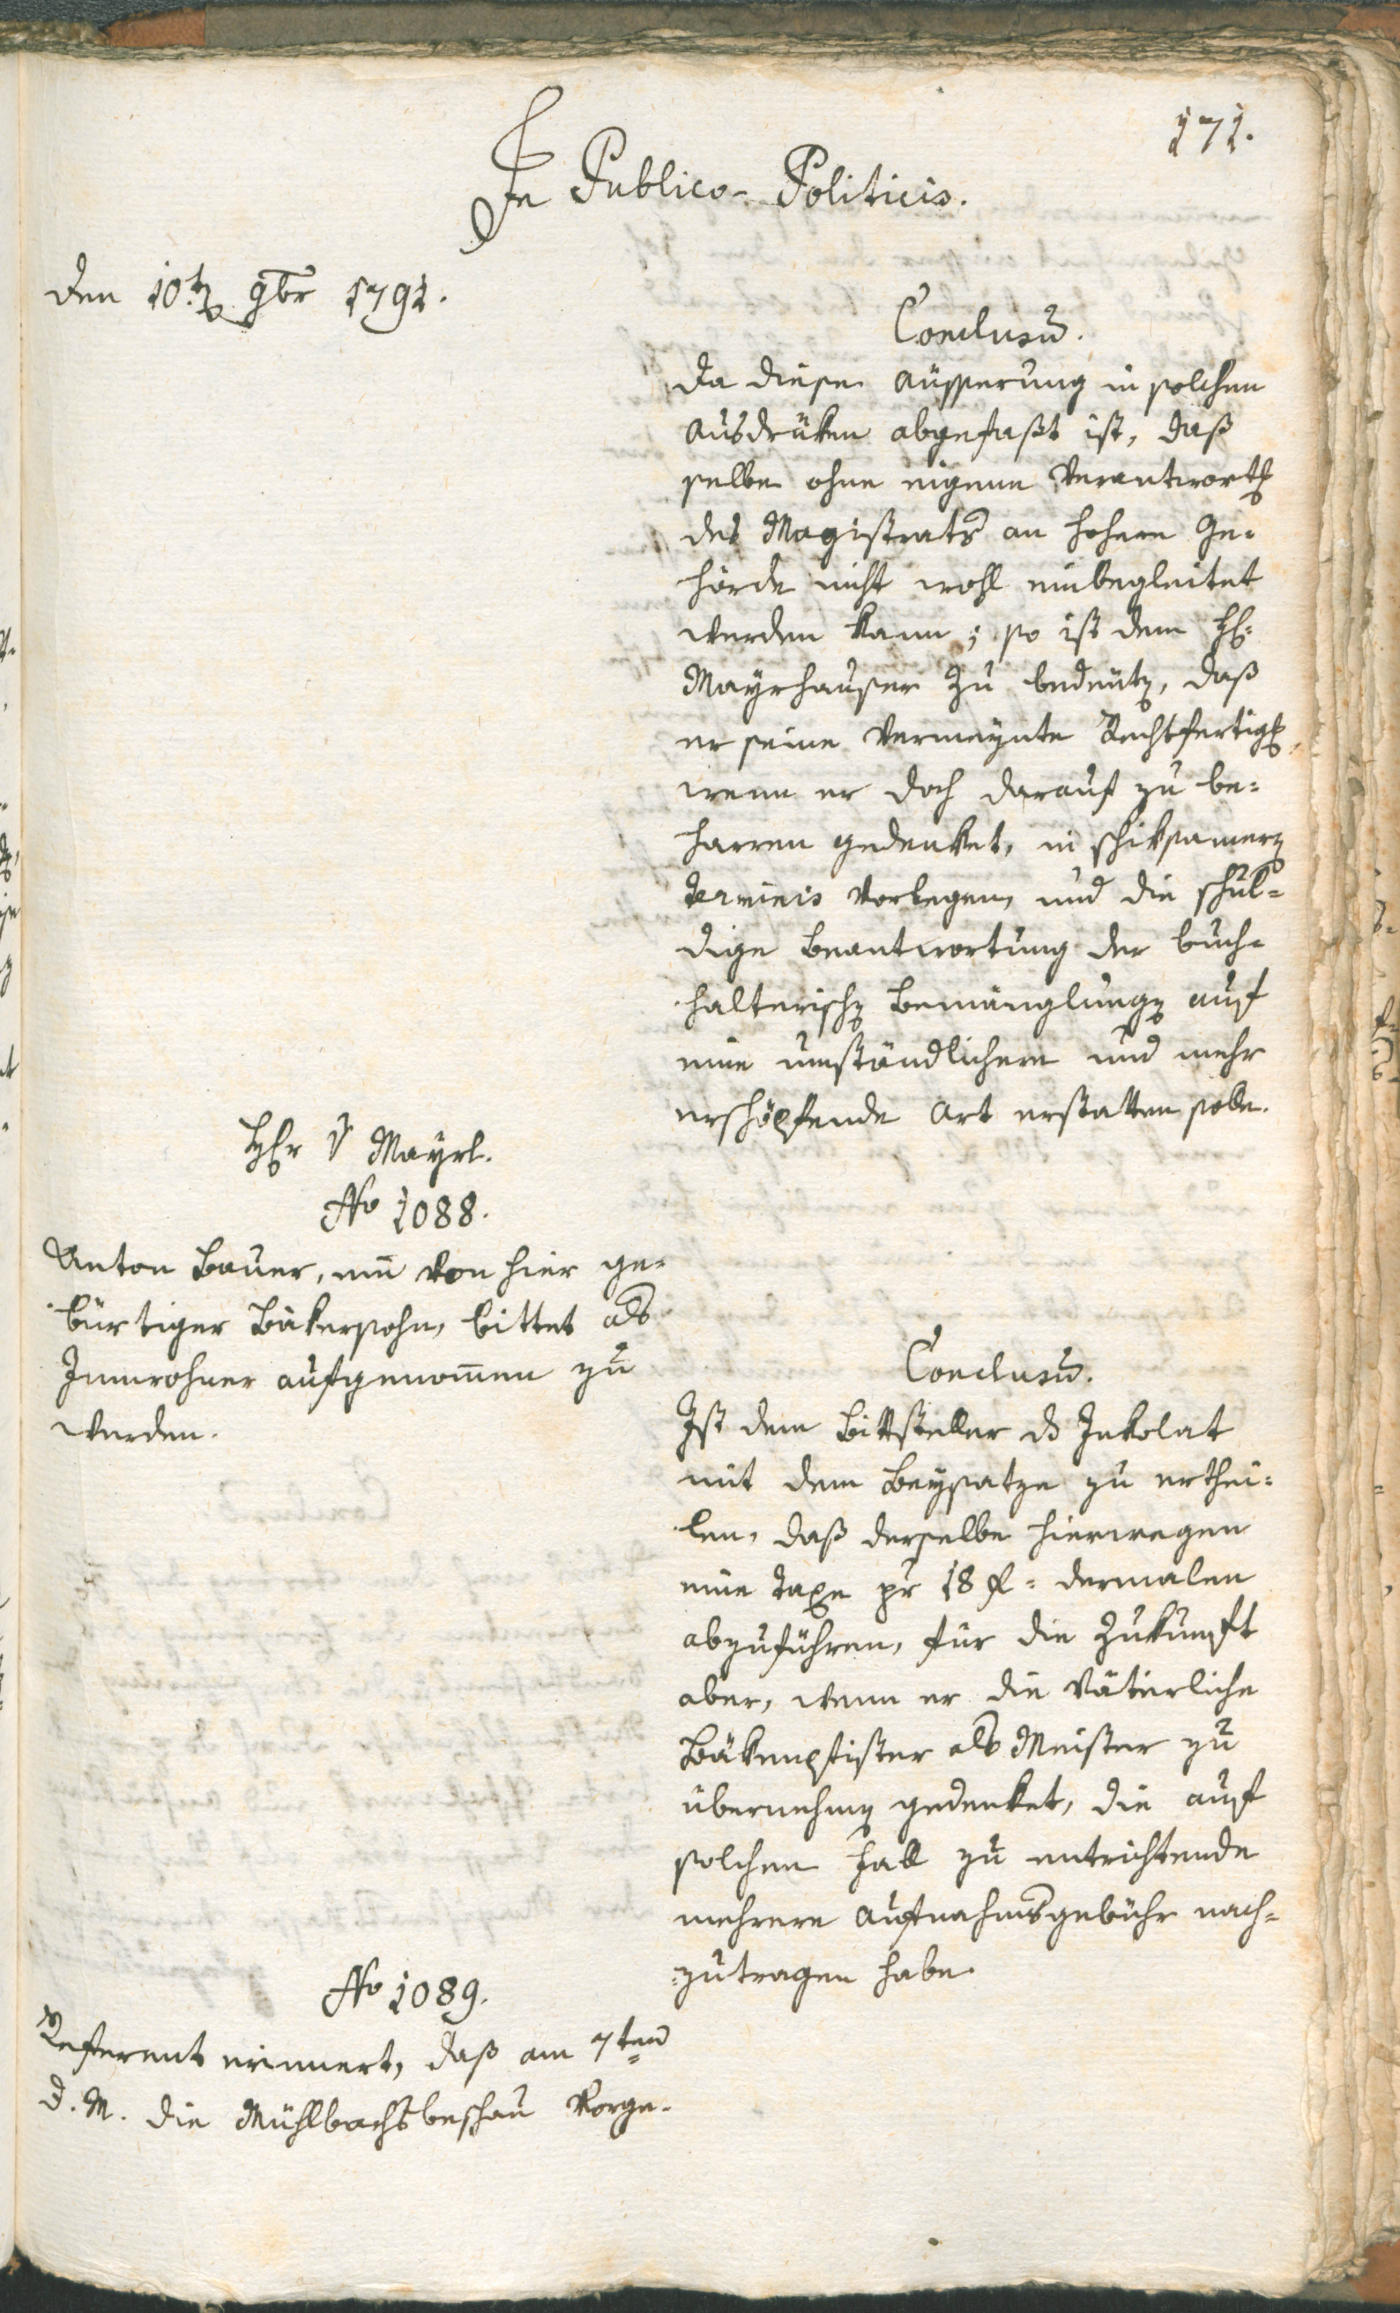 171.
In Publico-Politicis.
den 10t 9br 1791.
Conclusum.
Da diese Äusserung in solchen
Ausdrüken abgefaßt ist, daß
selbe ohne eigene Verantwortg
des Magistrats an hohere Ge-
hörde nicht wohl einbegleitet
werden kann; so ist dem H:
Mayrhauser zu bedeuten, daß
er seine vermeynte Rechtfertigg
wenn er doch darauf zu be-
harren gedenket, in schiksamern
terminis vorlegen, und die schul-
dige Beantwortung der buch-
halterischen Bemänglungen auf
eine umständlichere und mehr
erschöpfende Art erstatten solle.
Hr v Mayrl.
No 1088.
Anton Bauer, ein von hier ge-
bürtiger Bäkersohn, bittet als
Innwohner aufgenommen zu
werden.
Conclusum.
Ist dem Bittsteller ds Inkolat
mit dem Beysatze zu erthei-
len, daß derselbe hierwegen
eine Taxe pr 18 f = dermalen
abzuführen, für die Zukunft
aber, wenn er die Väterliche
Bäkenpfister als Meister zu
übernehmen gedenket, die auf
solchen Fall zu entrichtende
mehrere Aufnahmsgebühr nach-
zutragen habe.
No 1089.
Referent erinnert, daß am 7ten
d. M. die Mühlbachsbeschau vorge-